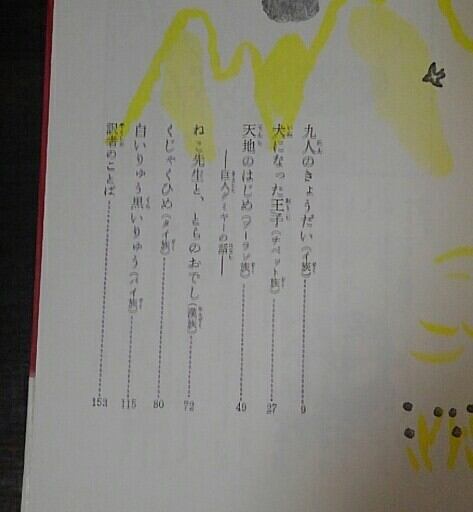 九人のきょうだい(イ族) 9
犬になった王子(チベット族) 27
天地のはじめ(プーラン族) 49
——巨人グミヤーの話——
ねこ先生と、とらのおでし(漢族) 72
くじゃくひめ(タイ族) 80
白いりゅう黒いりゅう(パイ族) 115
訳者のことば 153